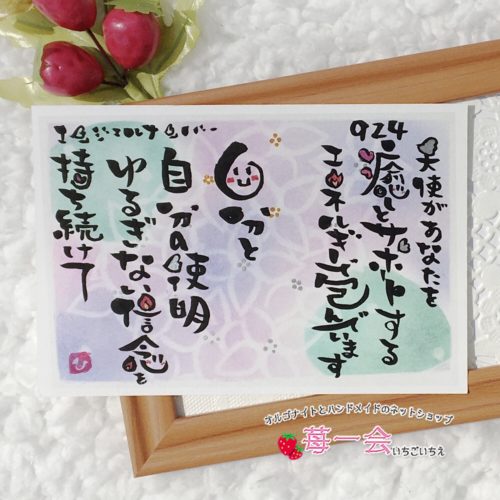 エンジェルナンバー
924
天使があなたを
癒しとサポートする
エネルギーで包んでいます
自分と
自分の使命
ゆるぎない信念を
持ち続けて
オルゴナイトとハンドメイドのネットショップ
苺一会 いちごいちえ